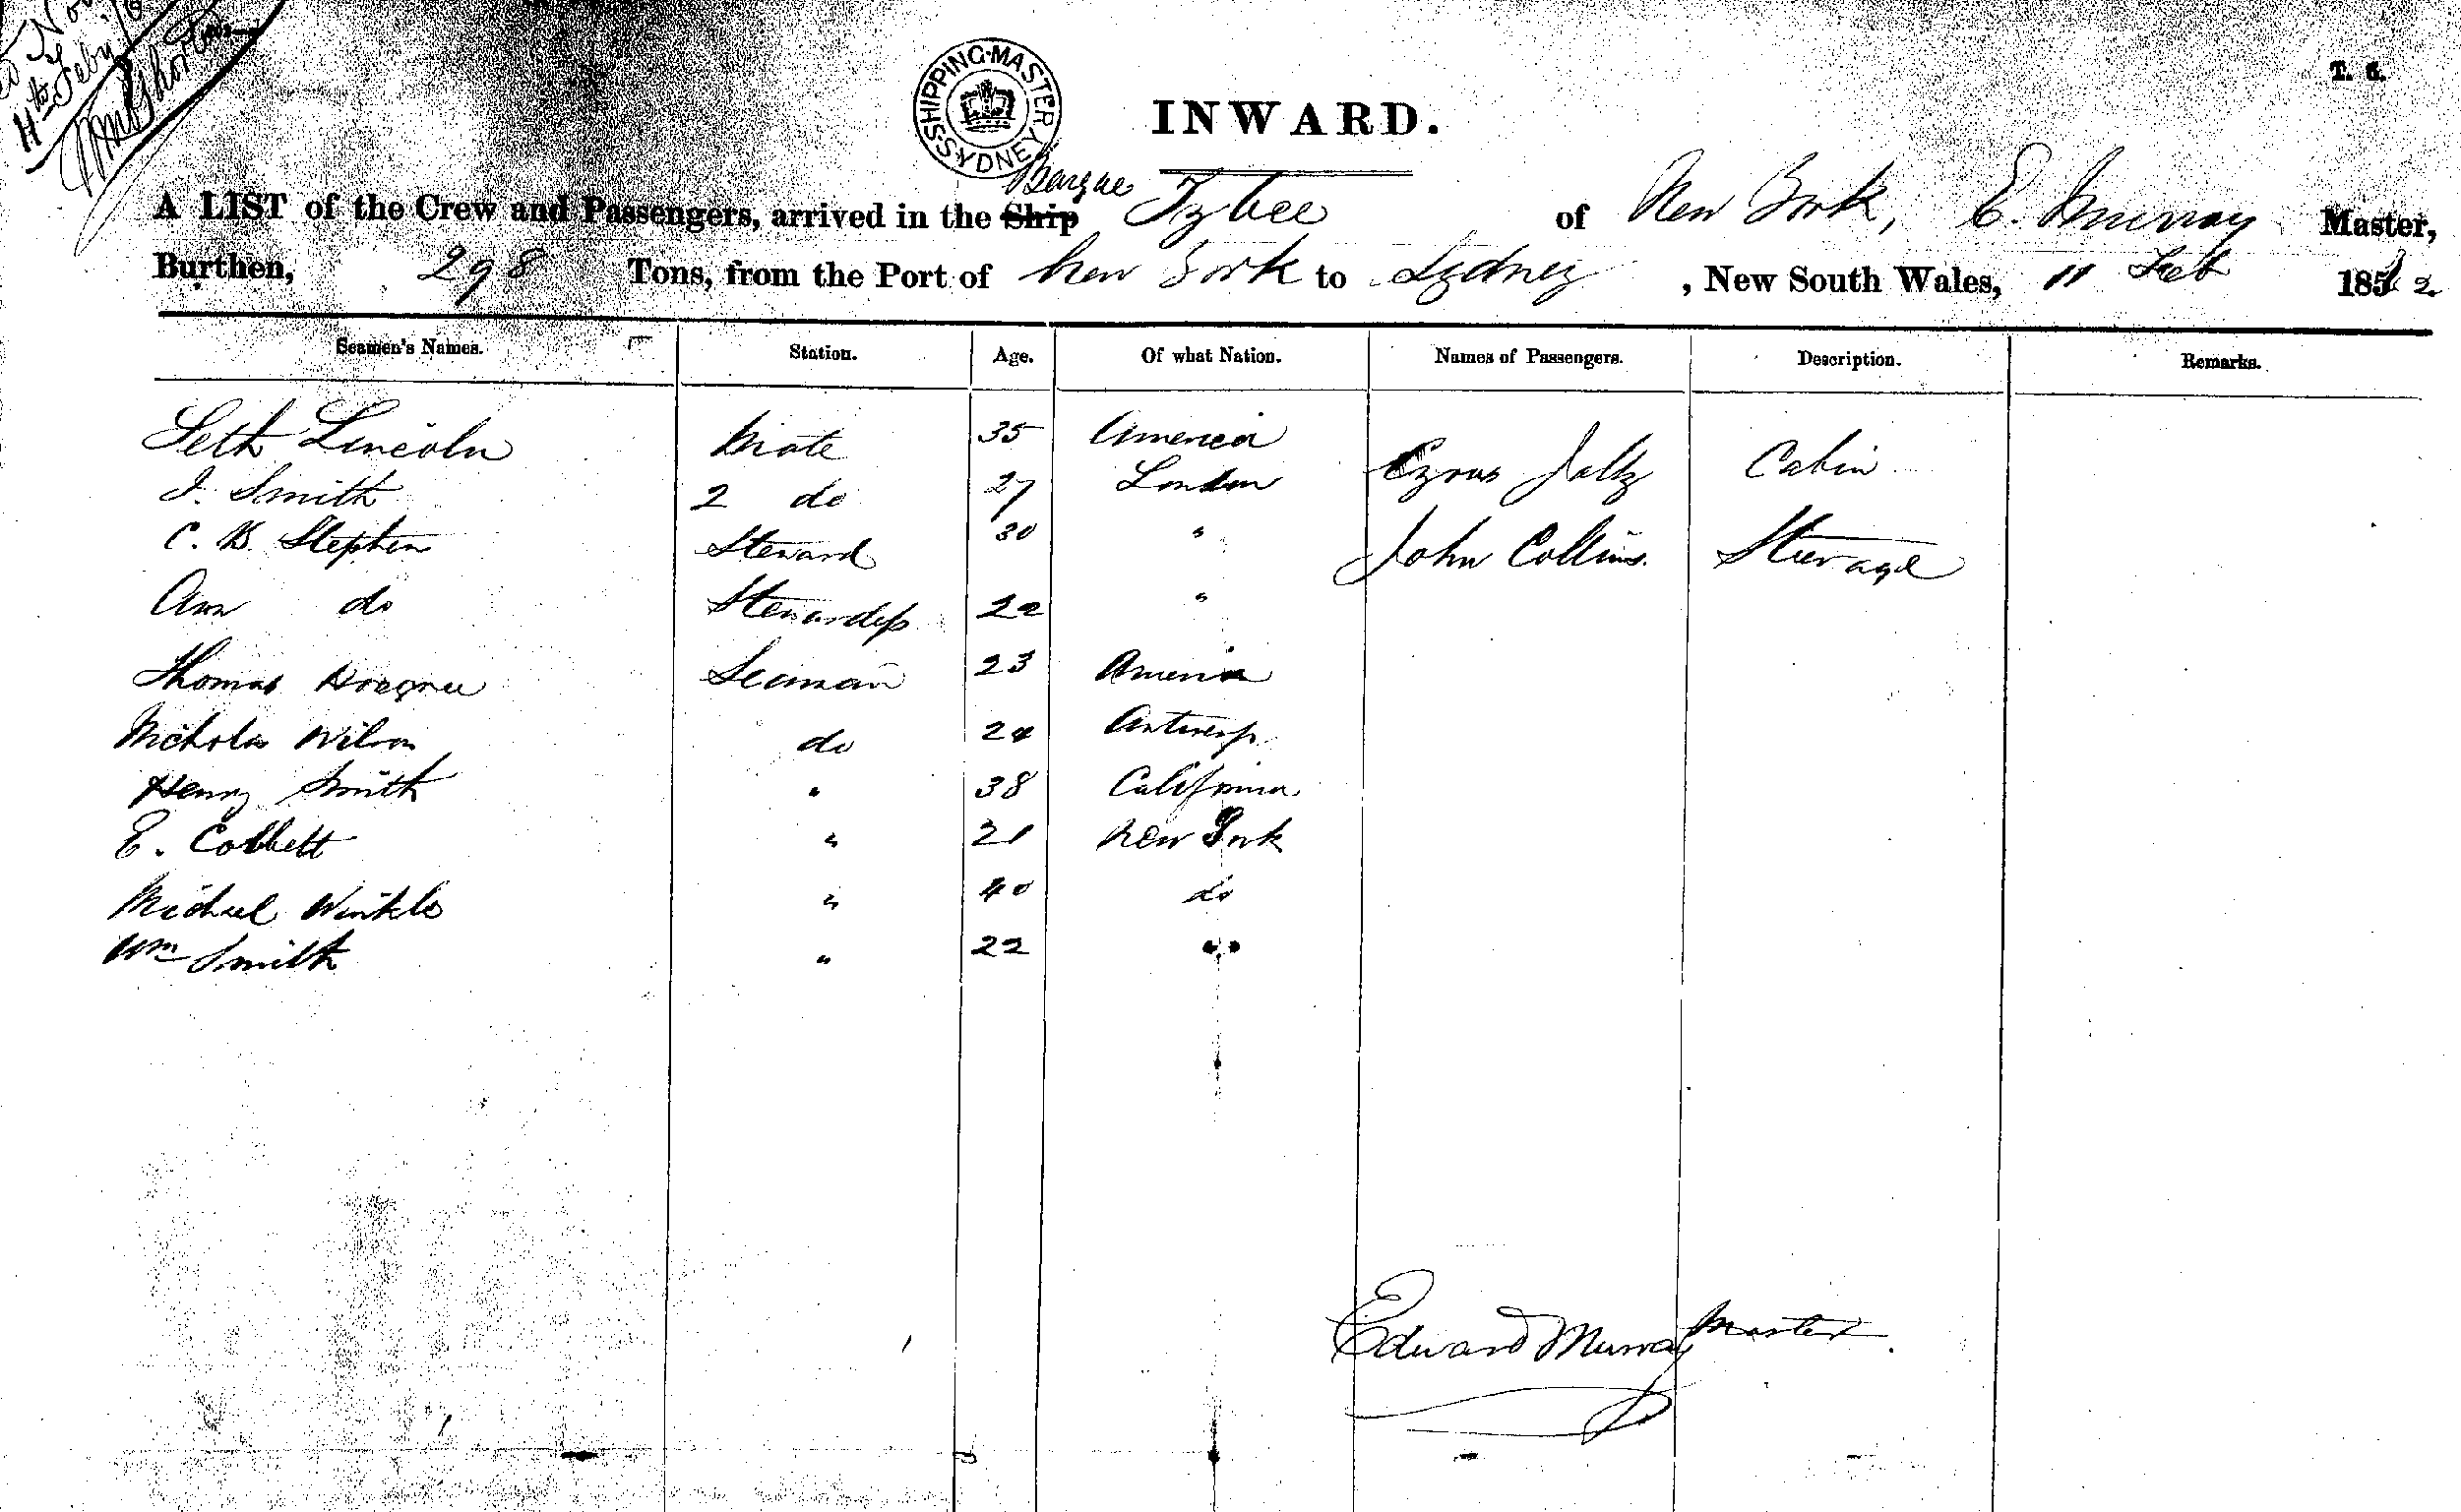 T. 6.
SHIPPING·MASTER SYDNEY
INWARD.
Barque
A LIST of the Crew and Passengers, arrived in the Ship Tybee of New York, E. Murray Master,
Burthen, 298 Tons, from the Port of New York to Sydney, New South Wales, 11 Feb 1852
Seamen's Names. Station. Age. Of what Nation. Names of Passengers. Description. Remarks.
Seth Lincoln Mate 35 America Cyrus Cabin
J. Smith 2 do 27 London
C. B. Stephen Steward 30 " John Collins. Steerage
Ann do Stewardess 22 "
Thomas Seaman 23 America
Nicholas Wilson do 24 Antwerp
Henry Smith " 38 California
E. Cobbett " 21 New York
Michael Winkle " 40 do
Wm Smith " 22 "
Edward Murray Master.